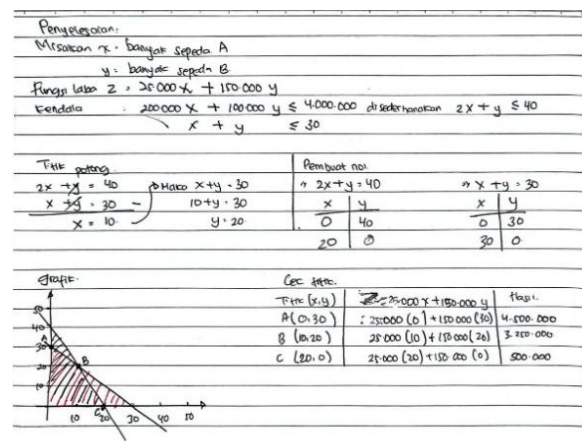 Penyelesaian:
Misalkan x = banyak sepeda A
y = banyak sepeda B
Fungsi laba Z = 25.000 x + 150.000 y
Kendala 200.000 x + 100.000 y ≤ 4.000.000 disederhanakan 2x + y ≤ 40
x + y ≤ 30
Titik potong
2x + y = 40
x + y = 30 -
x = 10
Maka x + y = 30
10 + y = 30
y = 20
Pembuat nol
2x + y = 40
x y
0 40
20 0
x + y = 30
x y
0 30
30 0
Grafik
50
40
30
20
10
A
B
C
10 20 30 40 50
Cec titik
Titik (x,y) Z = 25.000 x + 150.000 y Hasil
A (0,30) : 25.000 (0) + 150.000 (30) 4.500.000
B (10,20) 25.000 (10) + 150.000 (20) 3.250.000
C (20,0) 25.000 (20) + 150.000 (0) 500.000